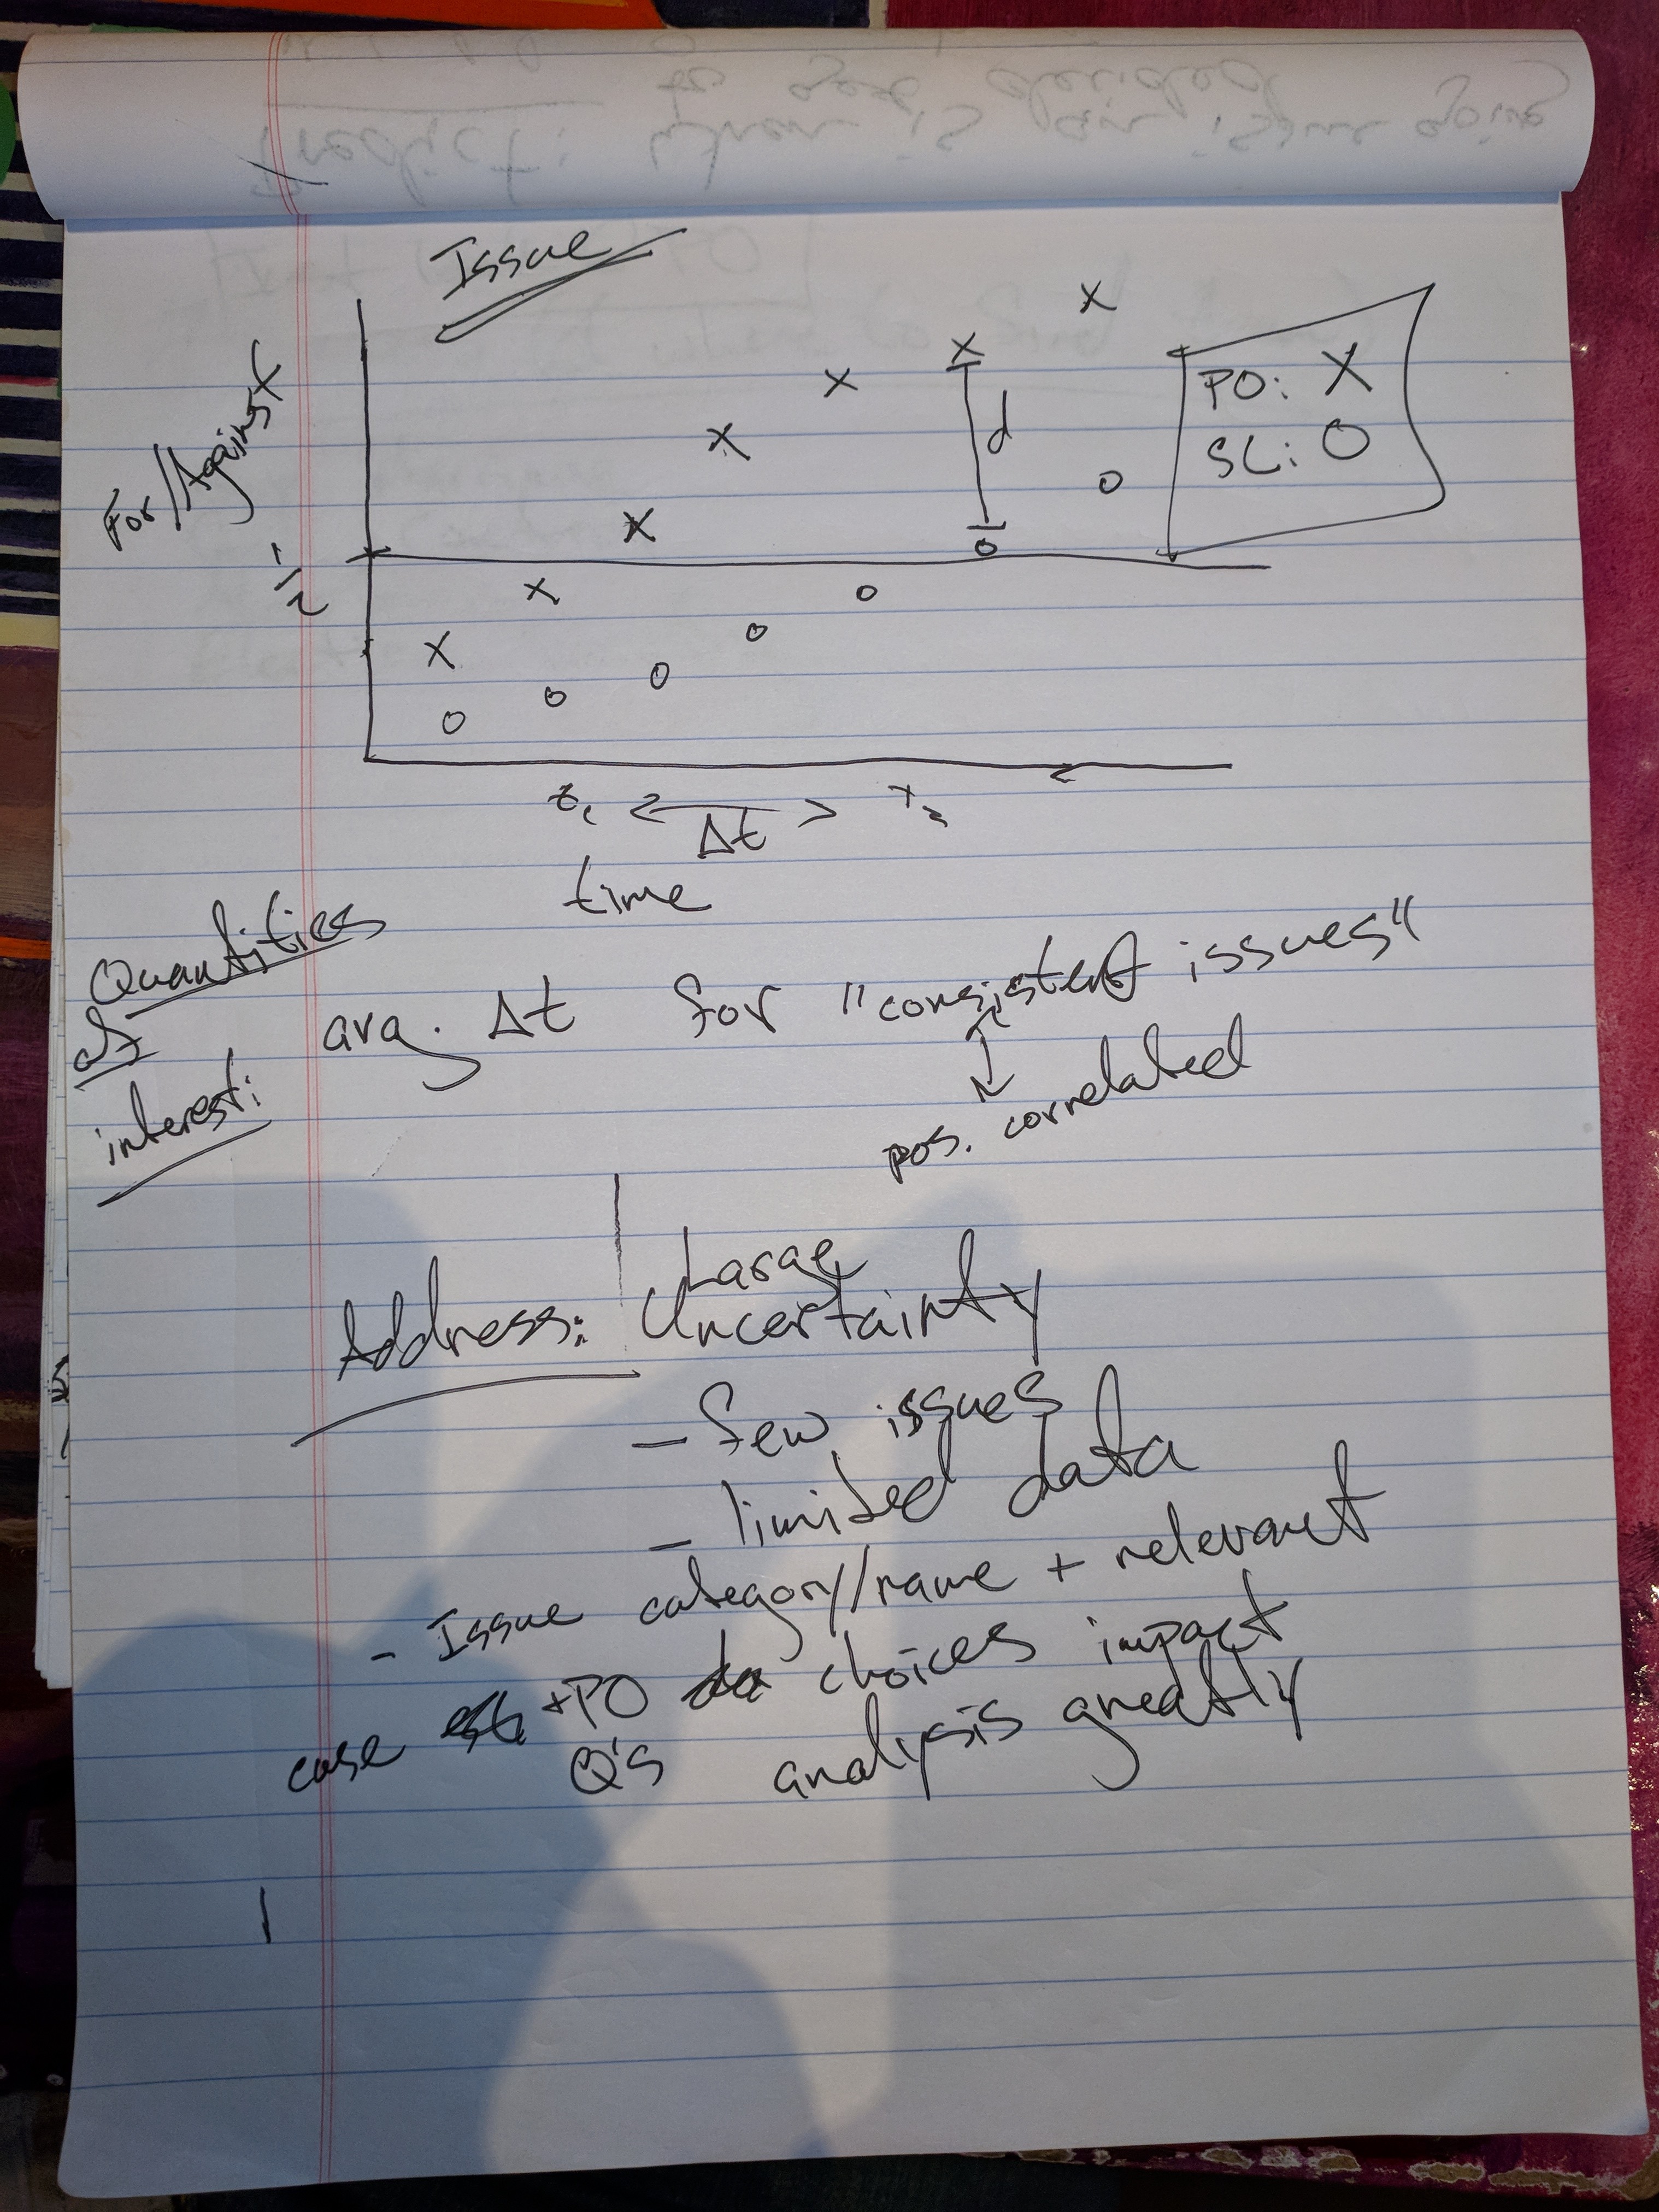 Issue
For/Against
1/2
X
X
X
X
X
X
X
d
PO: X
SC: O
o
o
o
o
o
o
o
t1 <——> t2
Δt
time
Quantities
of
interest:
avg. Δt for "consistent issues"
pos. correlated
Address:
Large
Uncertainty
- few issues
- limited data
- Issue category/name + relevant
case +PO choices impact
Q's analysis greatly